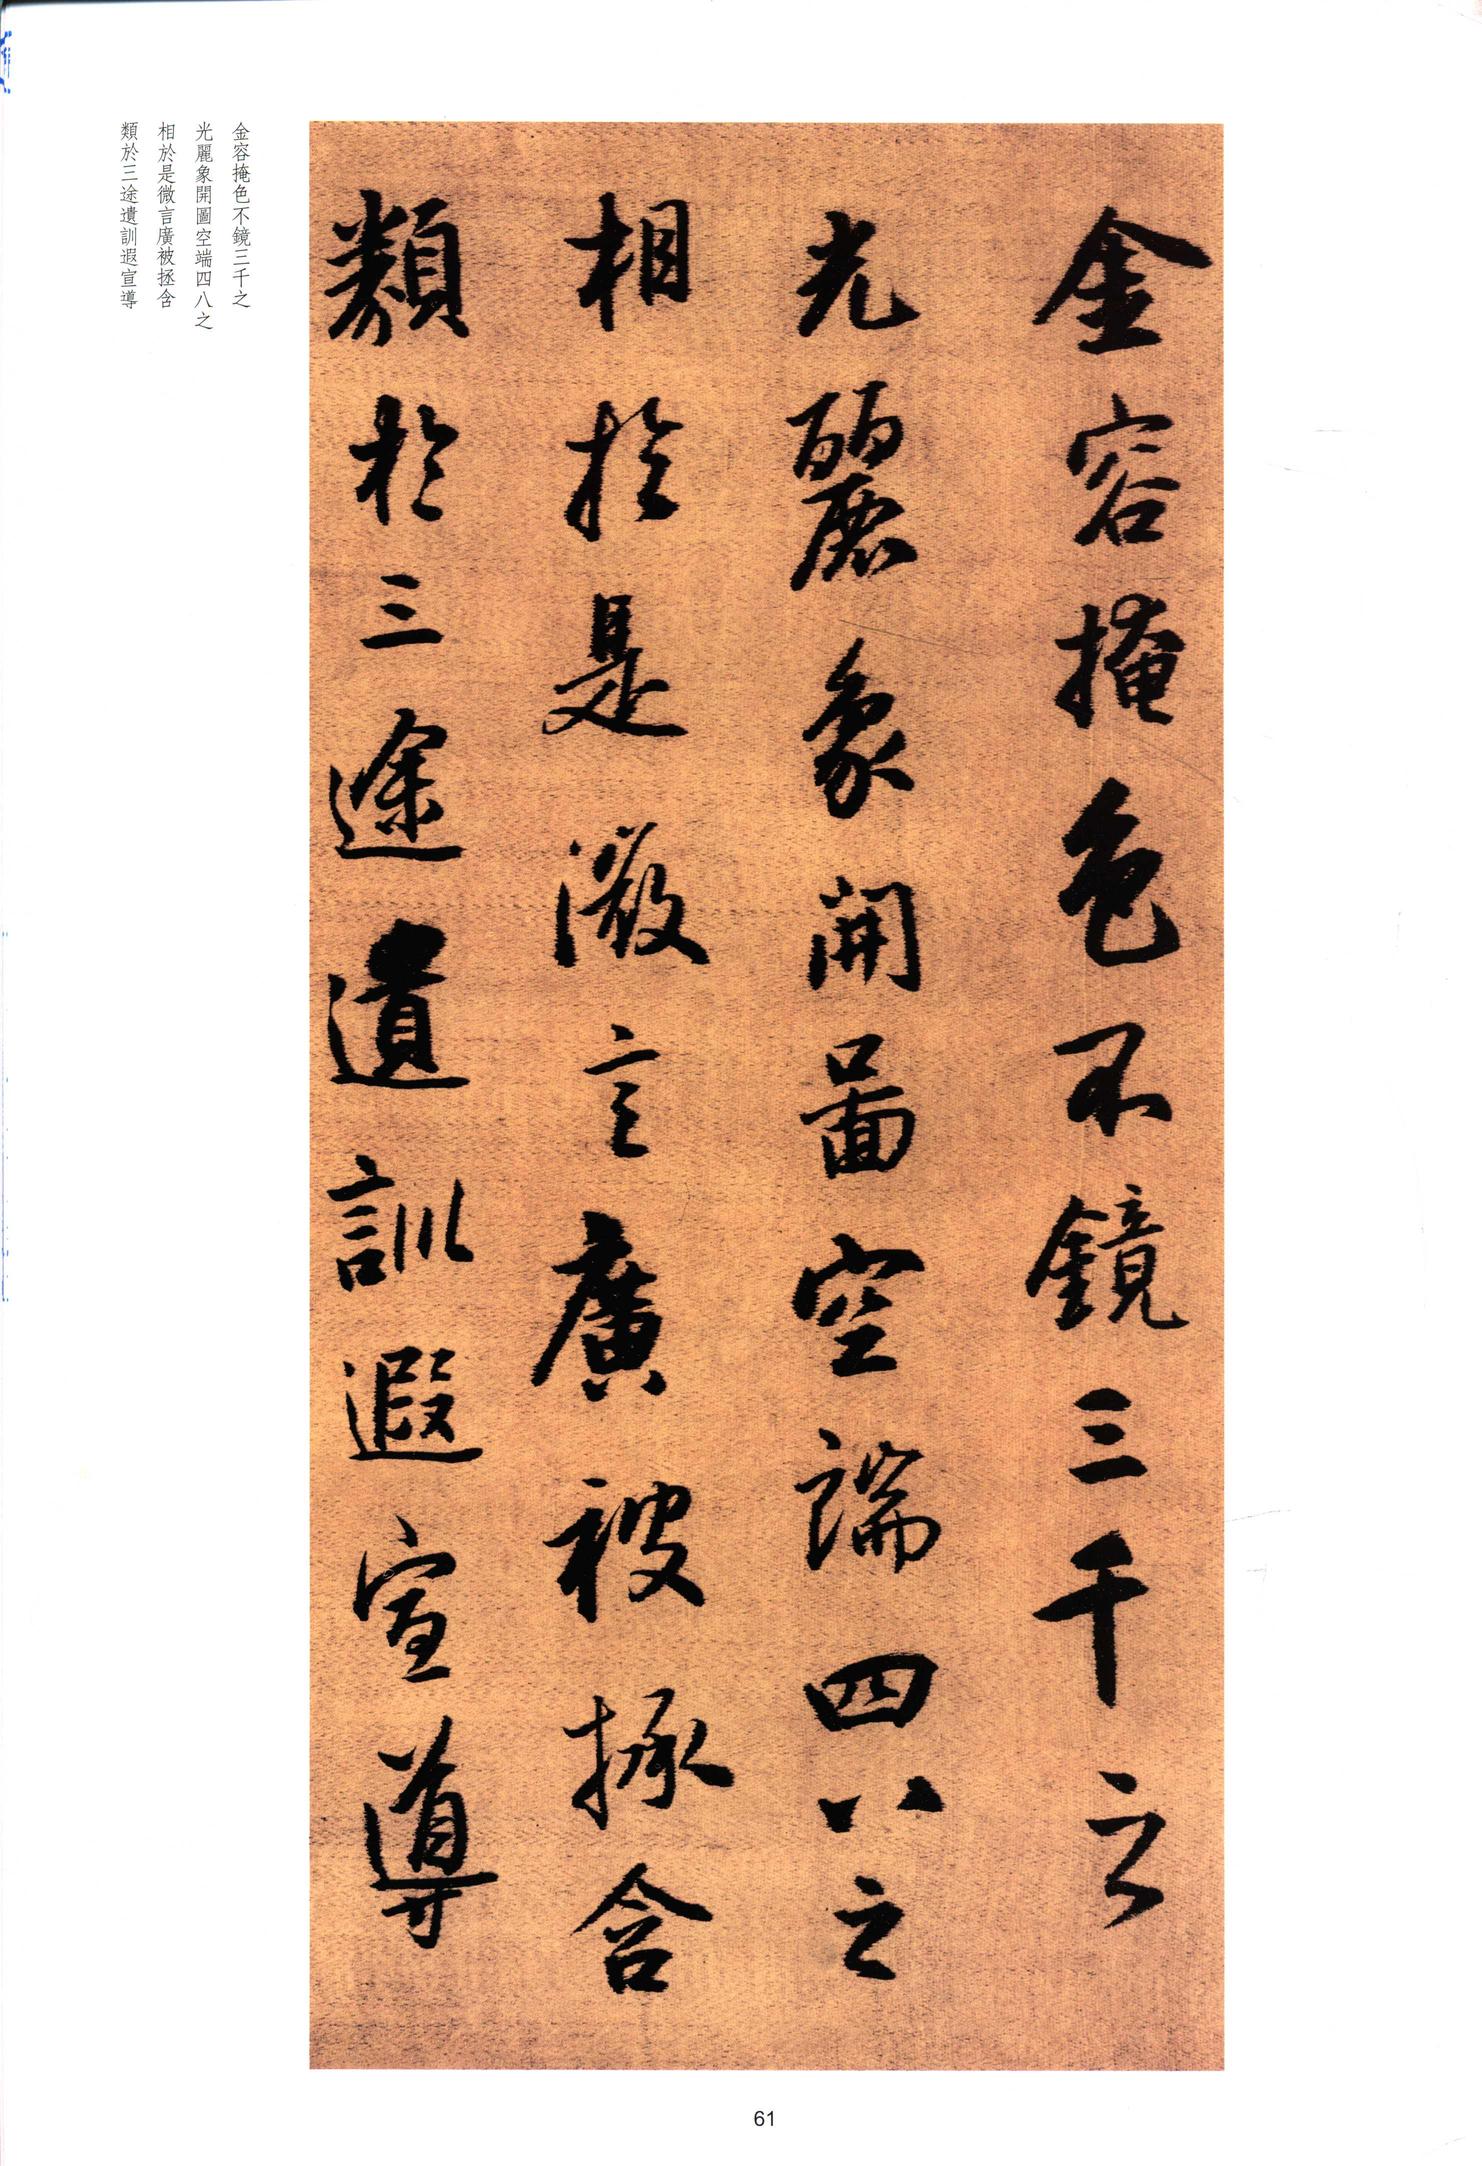 金容掩色不鏡三千之
光麗象開圖空端四八之
相於是微言廣被拯含
類於三途遺訓遐宣導
金容掩色不鏡三千之
光麗象開圖空端四八之
相於是微言廣被拯含
類於三途遺訓遐宣導
61